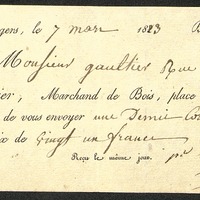 gens, le 7 mars 1823 B
Monsieur gaultier Rue
ier, Marchand de Bois, place
de vous envoyer une Demie Co
ix de vingt un francs
Reçu le même jour.